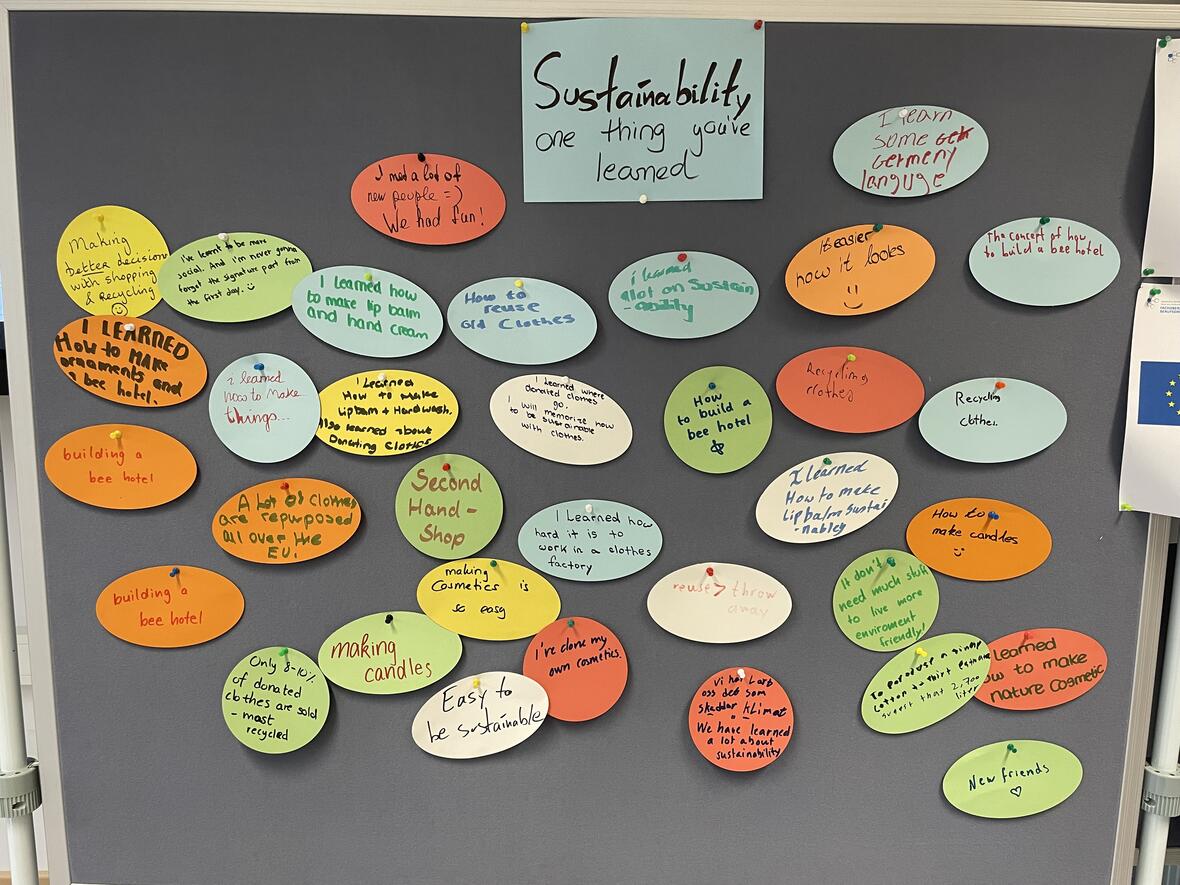 Sustainability
one thing you've
learned
I learn
some
Germeny
languge
I med a lot of
new people =)
We had fun!
Making
better decisions
with shopping
& Recycling
I've learnt to be more
social. And i'm never gonna
forget the signature part from
the first day.
I learned how
to make lip balm
and hand cream
How to
reuse
old Clothes
i learned
alot on Sustain
-ability
its easier
how it looks
The concept of how
to build a bee hotel
I LEARNED
How to MAKE
ornaments and
a bee hotel.
i learned
how to make
things...
I Learned
How to make
Lipbam + Handwash.
Also learned about
Donating Clothes
I Learned where
donated clothes
go.
I will memorize how
to be sustainable
with clothes.
How
to build a
bee hotel
Recycling
clothes
Recycling
clothes.
building a
bee hotel
A Lot of clothes
are repurposed
all over the
EU.
Second
Hand-
Shop
I Learned how
hard it is to
work in a clothes
factory
I learned
How to make
Lipbalm Sustai
-nabley
How to
make candles
building a
bee hotel
making
Cosmetics is
so easy
reuse > throw
away
It don't
need much stuff
to live more
enviroment
friendly!
Only 8-10%
of donated
clothes are sold
- most
recycled
making
candles
I've done my
own cosmetics.
Easy to
be sustainable
Vi har Lärt
oss det som
skaddar klimat
We have learned
a lot about
sustainability
To produse a
cotton t-shirt
suggest that 2.700
liter
learned
how to make
nature Cosmetic
New friends